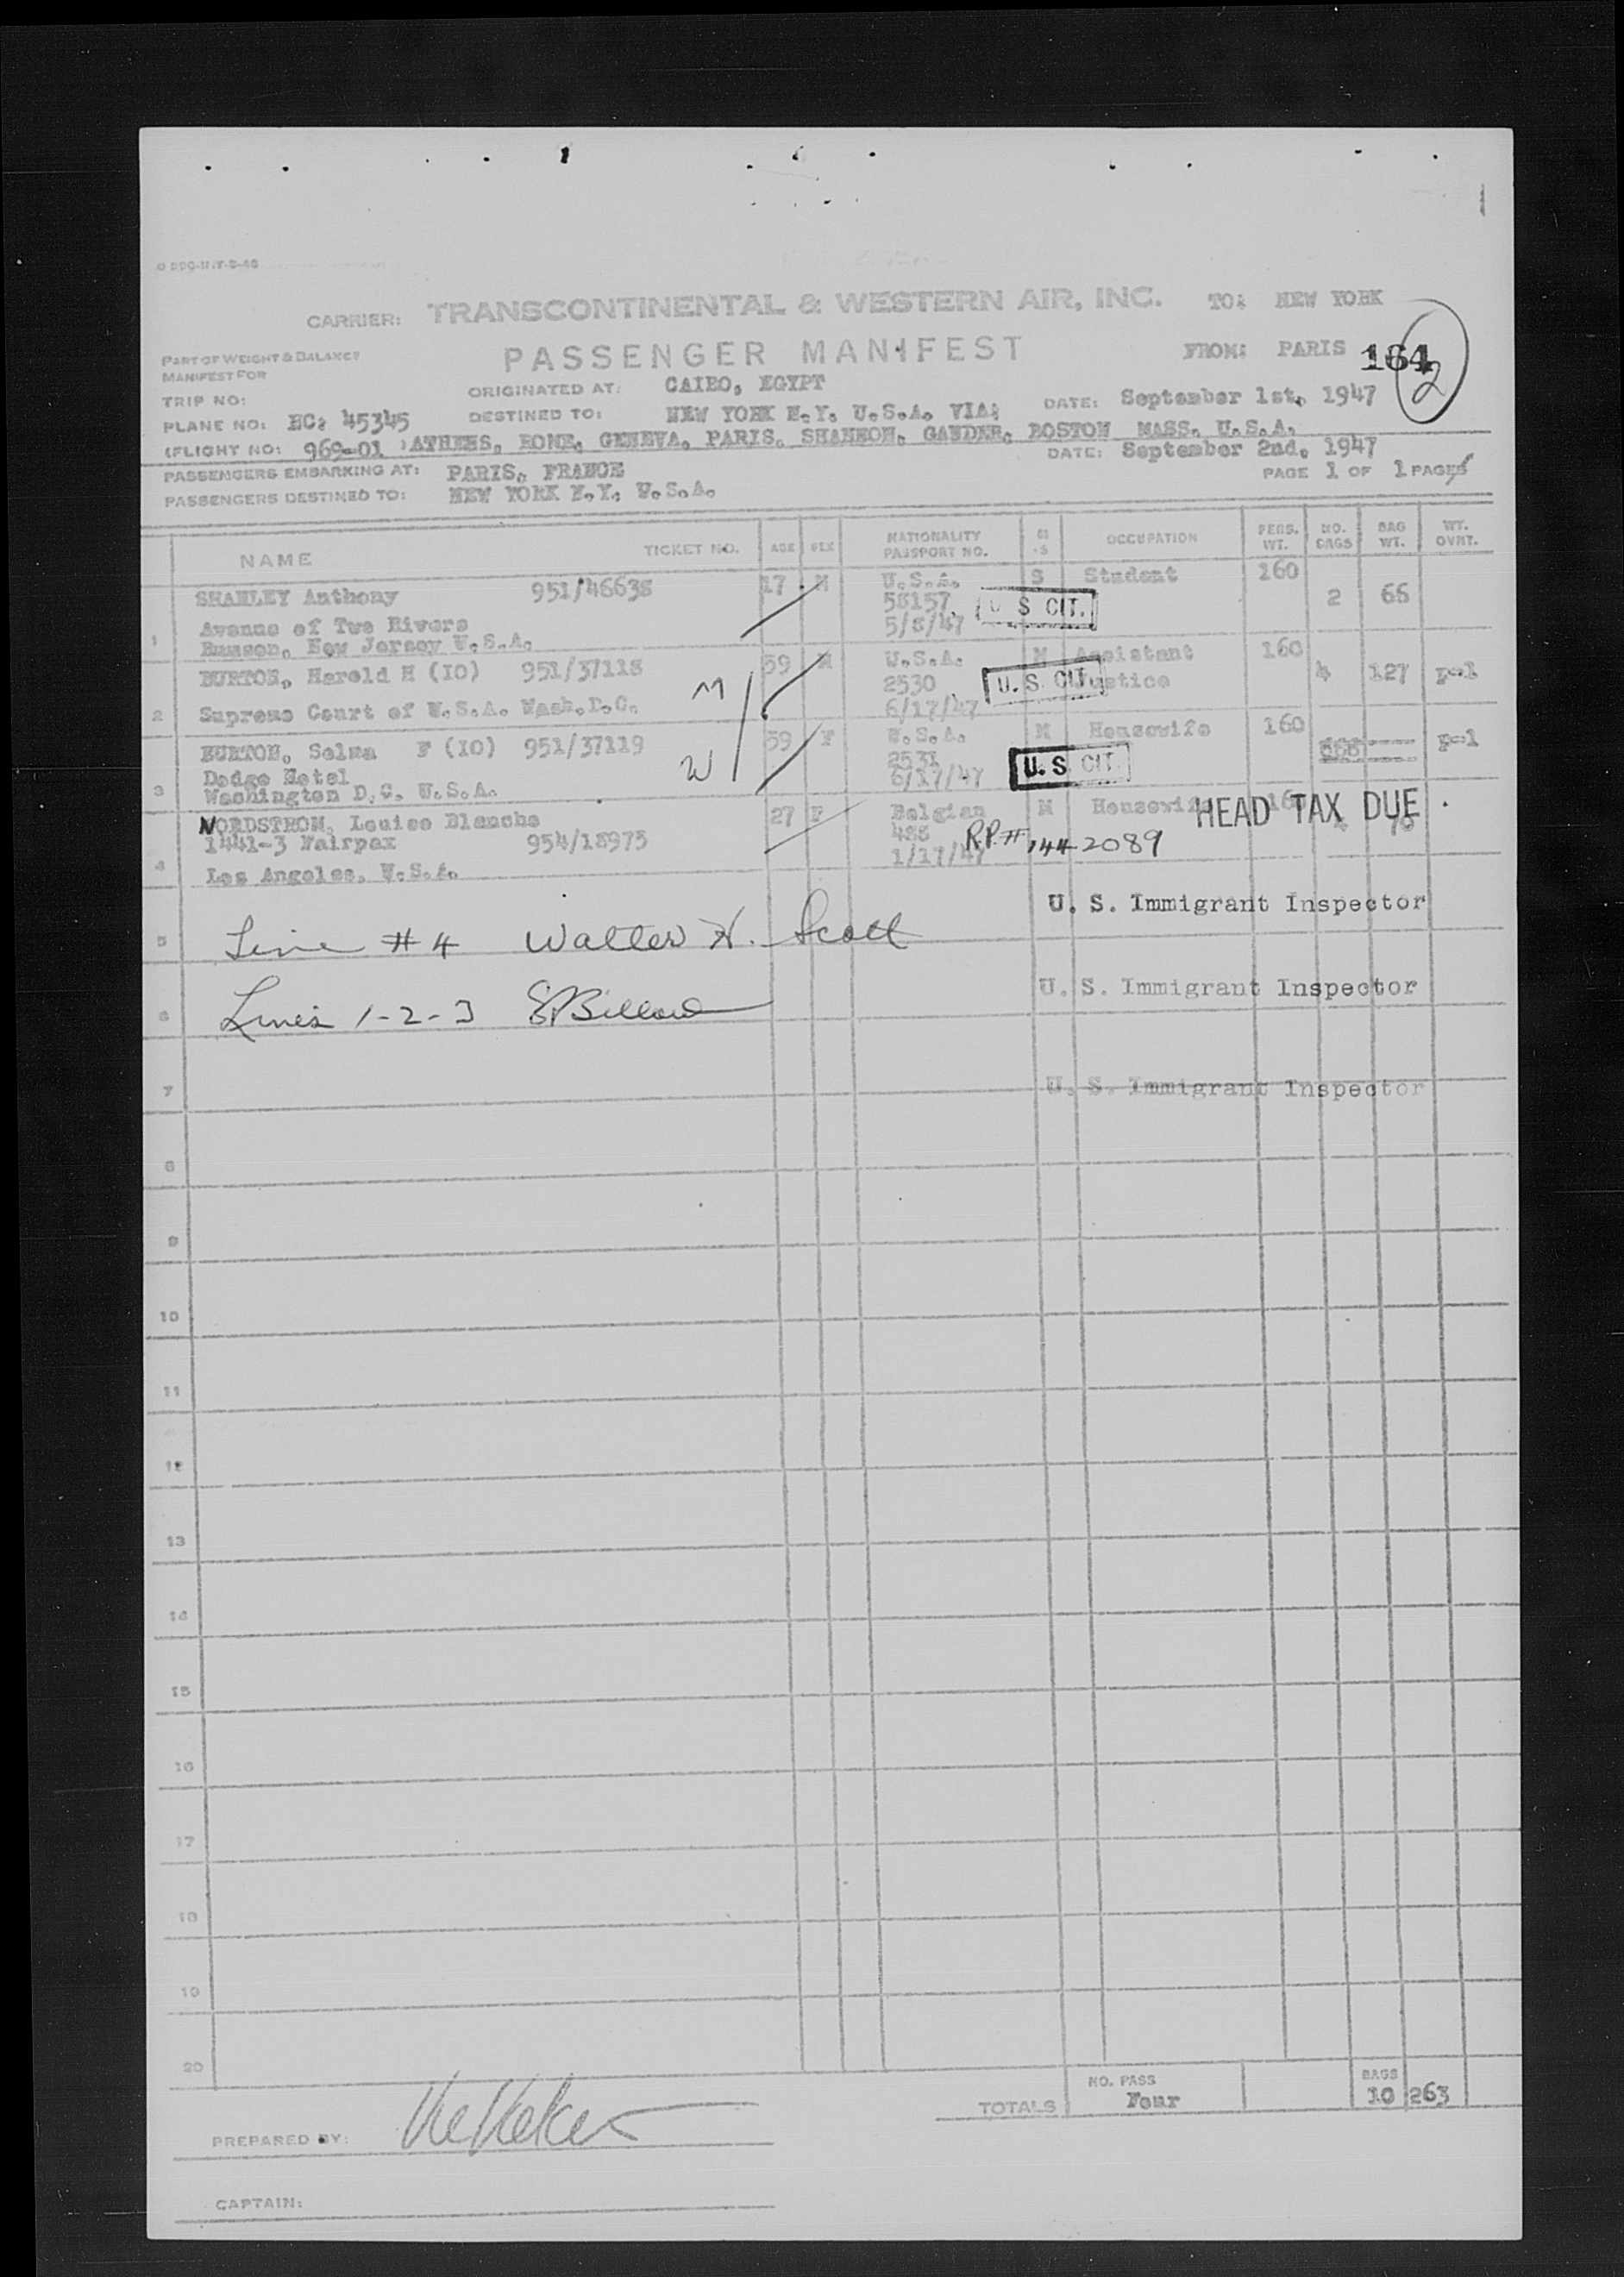 CARRIER: TRANSCONTINENTAL & WESTERN AIR, INC. TO: NEW YORK
PART OF WEIGHT & BALANCE
MANIFEST FOR
PASSENGER MANIFEST FROM: PARIS 164 2
TRIP NO: ORIGINATED AT: CAIRO, EGYPT
PLANE NO: 45345 DESTINED TO: NEW YORK N.Y. U.S.A. VIA: DATE: September 1st, 1947
(FLIGHT NO: 969-01 ) ATHENS, ROME, GENEVA, PARIS, SHANNON, GANDER, BOSTON MASS. U.S.A.
PASSENGERS EMBARKING AT: PARIS, FRANCE DATE: September 2nd, 1947
PASSENGERS DESTINED TO: NEW YORK N.Y. U.S.A. PAGE 1 OF 1 PAGES
NAME TICKET NO. AGE SEX NATIONALITY PASSPORT NO. OCCUPATION PERS. WT. NO. BAGS BAG WT. WT. OVRT.
SHANLEY Anthony 951/46638 17 M U.S.A. S Student 160
58157 U S CIT. 2 66
1 Avenue of Two Rivers 5/8/47
Rumson, New Jersey U.S.A.
BURTON, Harold H (IO) 951/37118 59 M U.S.A. M Assistant 160
M 2530 U.S. CIT. Justice 4 127 p-1
2 Supreme Court of U.S.A. Wash.D.C. 6/17/47
BURTON, Selma F (IO) 951/37119 59 F U.S.A. M Housewife 160
W 2531 U.S CIT. p-1
Dodge Hotel 6/17/47
3 Washington D.C. U.S.A.
NORDSTROM, Louise Blanche 27 F Belgian M Housewife 160 HEAD TAX DUE
1441-3 Fairfax 954/18975 488 R.P.# 144 2089 4 70
1/17/47
4 Los Angeles, U.S.A.
U. S. Immigrant Inspector
5 Line #4 Walter H. Scott
U. S. Immigrant Inspector
6 Lines 1-2-3
U. S. Immigrant Inspector
7
8
9
10
11
12
13
14
15
16
17
18
19
20
TOTALS NO. PASS Four BAGS 10 263
PREPARED BY:
CAPTAIN: